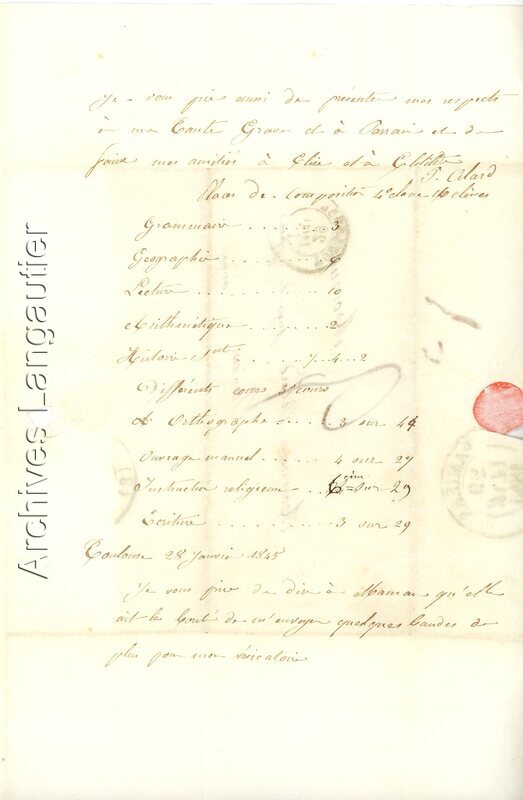 Je vous prie aussi de présenter mes respects
à ma Tante Grave et à et de
faire mes amitiés à Elise et à Clotilde
Places de composition 4e classe 16 élèves
Grammaire . . . . . . . 3
Géographie . . . . . . 6
Lecture . . . . . . . 10
Arithmétique . . . . . 2
Histoire Snte . . . . . 4 . 2
Différents cours 3e cours
d'Orthographe . . . . 3 sur 44
Ouvrage manuel . . . . . 4 sur 27
Instruction religieuse . . 6ème sur 29
Ecriture . . . . . . . 3 sur 29
Toulouse 28 Janvier 1845
Je vous prie de dire à Maman qu'elle
ait la bonté de m'envoyer quelques bandes de
plus pour mon vésicatoire
Archives Langautier